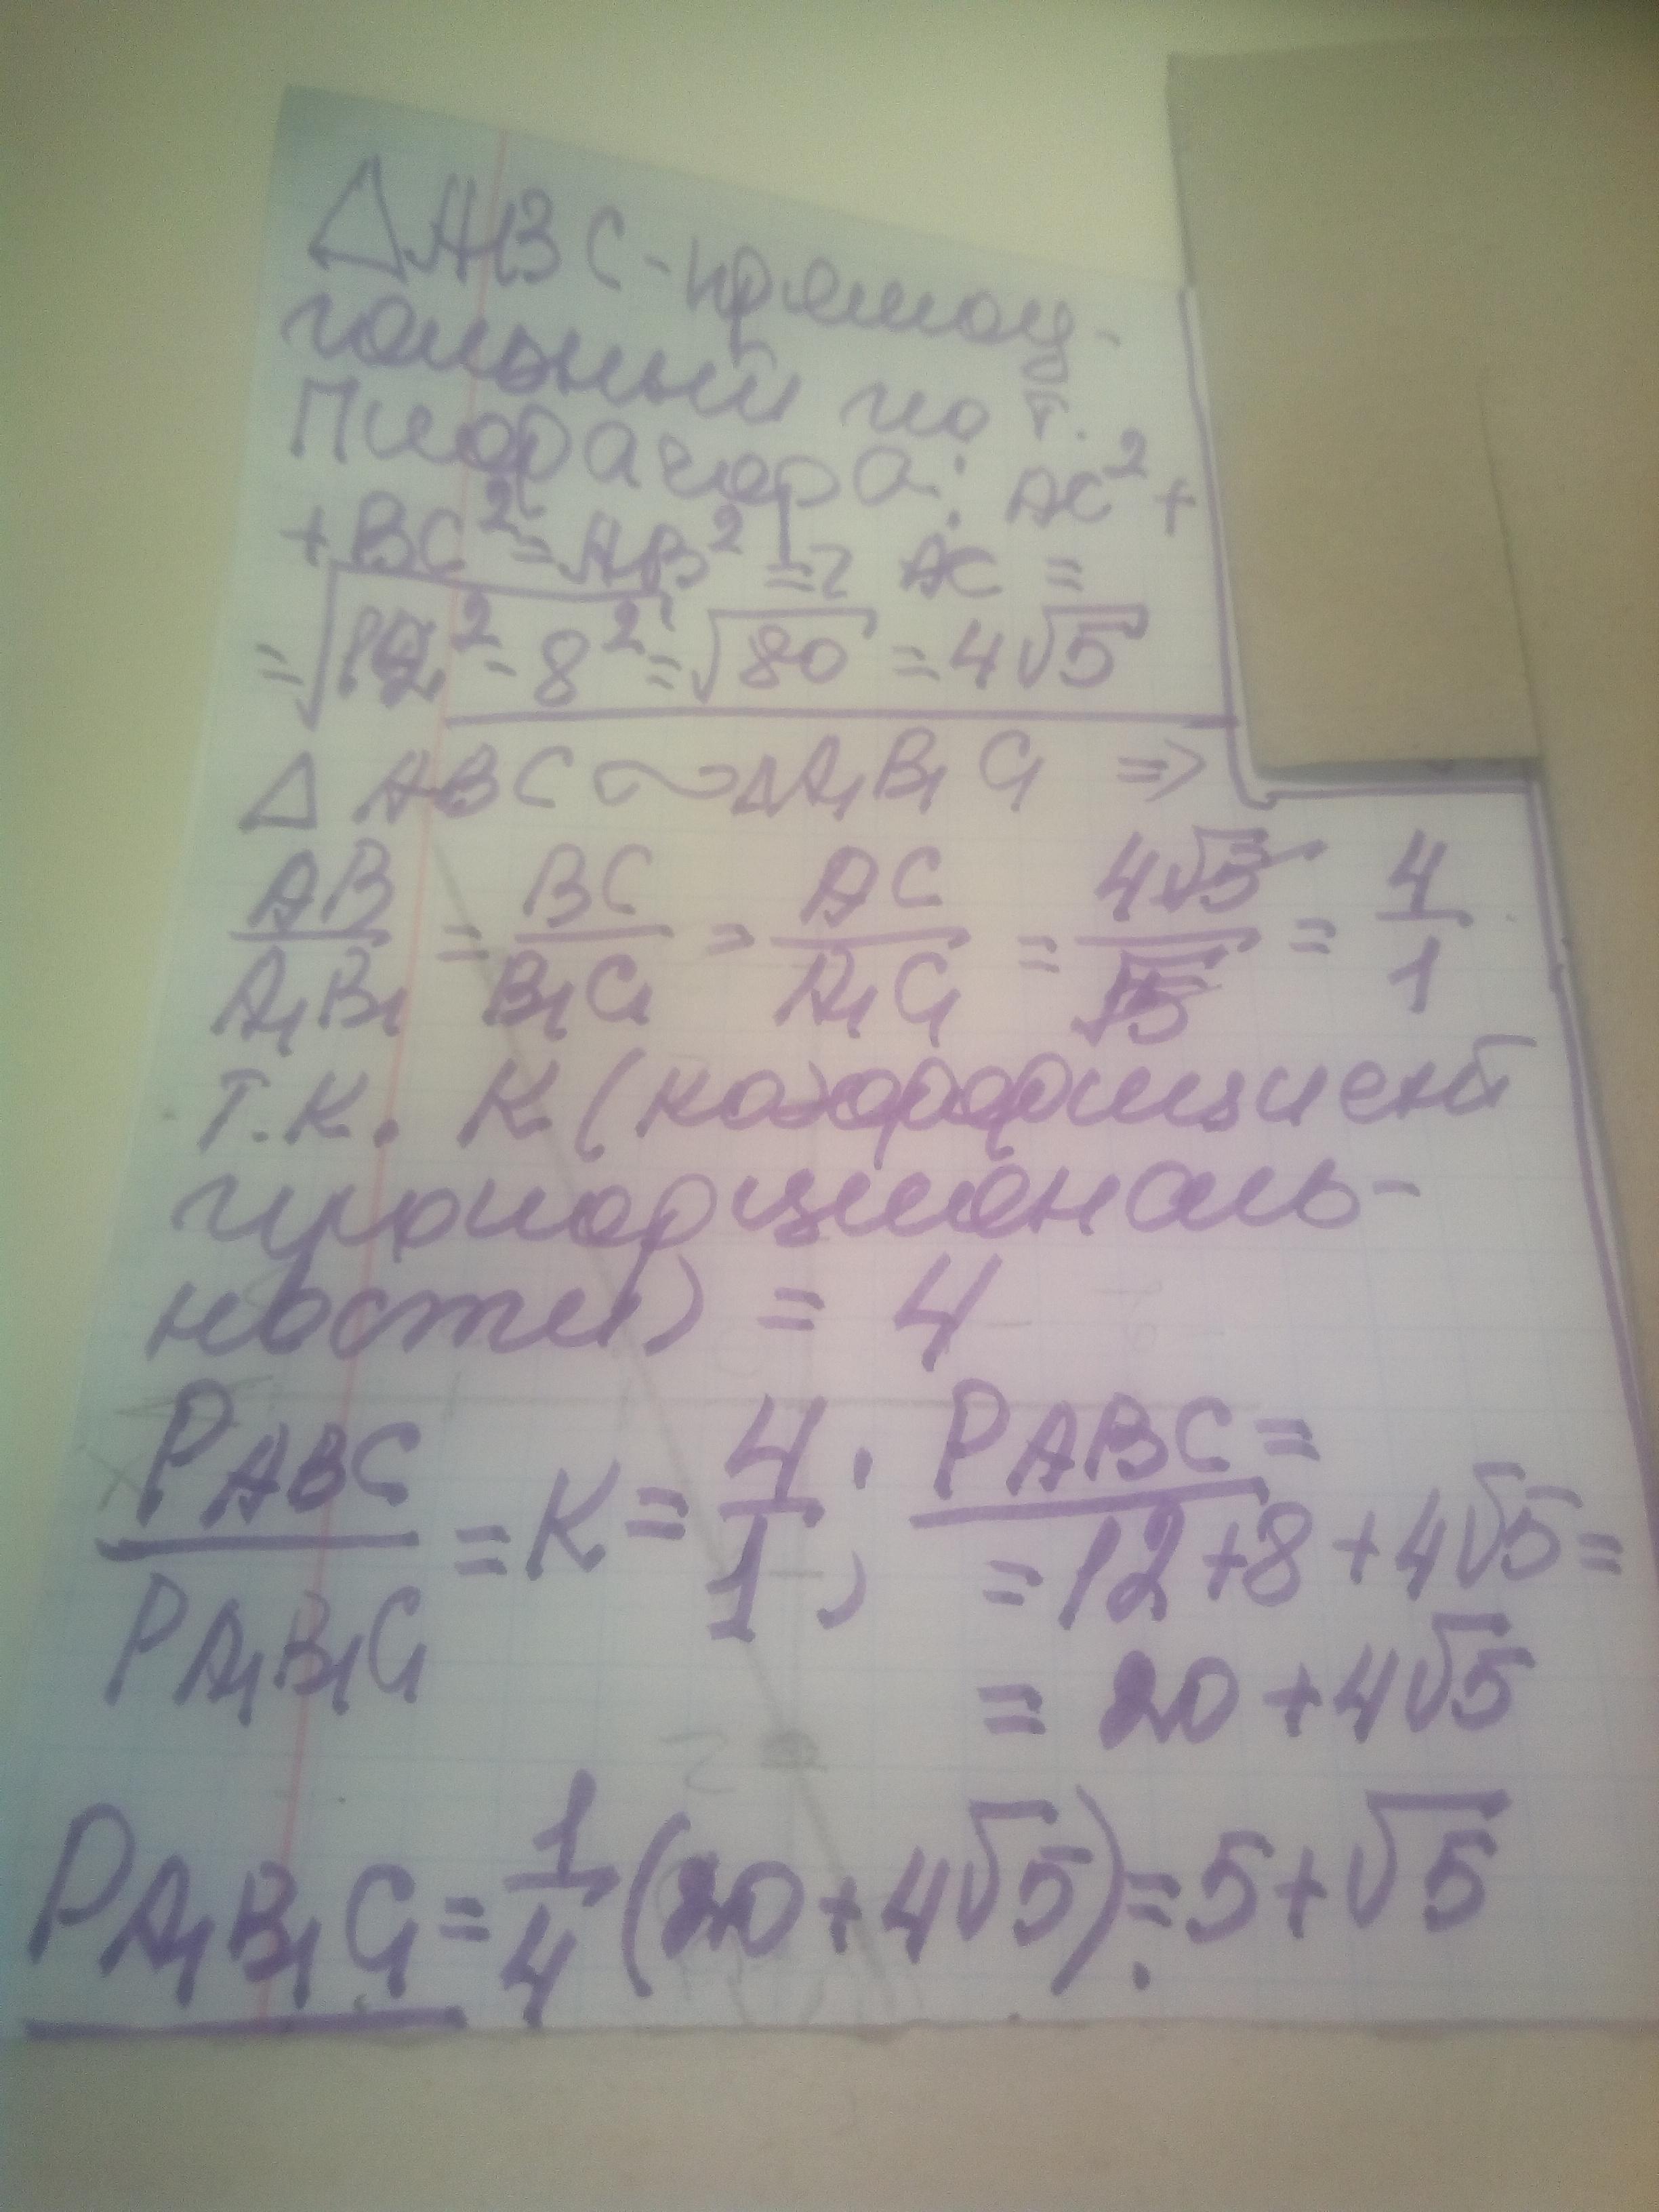 △ABC-прямоу-
гольный по т.
Пифагора: AC² +
+ BC² = AB² => AC =
= √12² - 8² = √80 = 4√5
△ ABC ∼ △A₁B₁C₁ =>
AB/A₁B₁ = BC/B₁C₁ = AC/A₁C₁ = 4√5/√5 = 4/1
т.к. K (коэффициент
пропорциональ-
ности) = 4
PABC/PA₁B₁C₁ = K = 4/1 ; PABC =
= 12 + 8 + 4√5 =
= 20 + 4√5
PA₁B₁C₁ = 1/4 (20 + 4√5) = 5 + √5